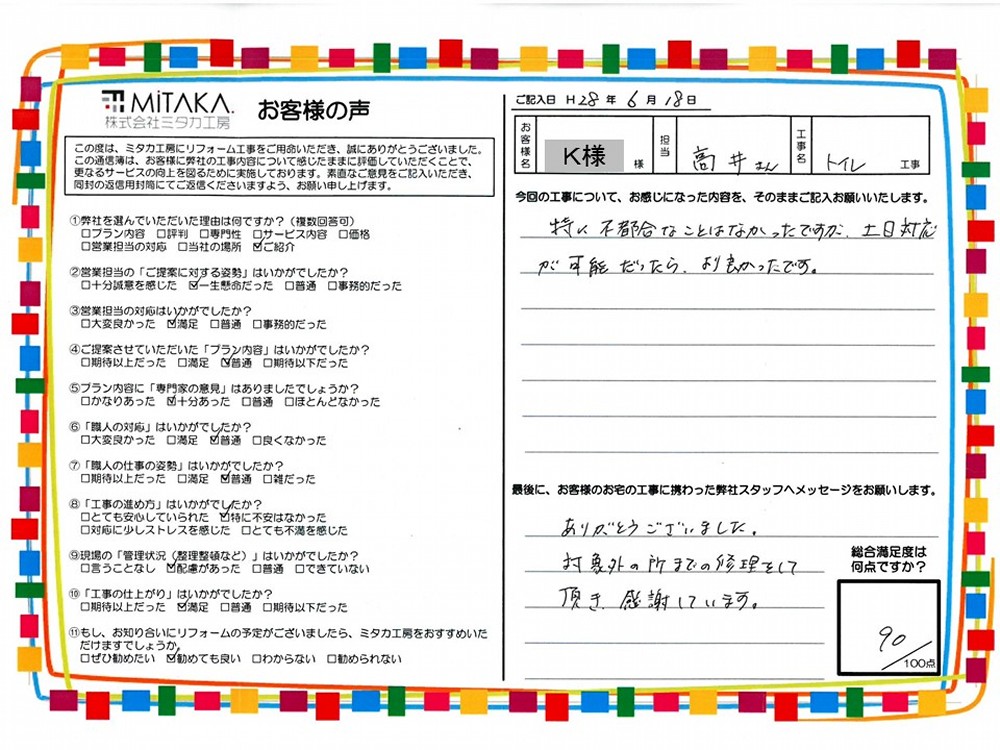 MiTAKA.
株式会社ミタカ工房
お客様の声
この度は、ミタカ工房にリフォーム工事をご用命いただき、誠にありがとうございました。
この通信簿は、お客様に弊社の工事内容について感じたままに評価していただくことで、
更なるサービスの向上を図るために実施しております。素直なご意見をご記入いただき、
同封の返信用封筒にてご返信くださいますよう、お願い申し上げます。
①弊社を選んでいただいた理由は何ですか?(複数回答可)
□プラン内容 □評判 □専門性 □サービス内容 □価格
□営業担当の対応 □当社の場所 ☑ご紹介
②営業担当の「ご提案に対する姿勢」はいかがでしたか?
□十分誠意を感じた ☑一生懸命だった □普通 □事務的だった
③営業担当の対応はいかがでしたか?
□大変良かった ☑満足 □普通 □事務的だった
④ご提案させていただいた「プラン内容」はいかがでしたか?
□期待以上だった □満足 ☑普通 □期待以下だった
⑤プラン内容に「専門家の意見」はありましたでしょうか?
□かなりあった ☑十分あった □普通 □ほとんどなかった
⑥「職人の対応」はいかがでしたか?
□大変良かった □満足 ☑普通 □良くなかった
⑦「職人の仕事の姿勢」はいかがでしたか?
□期待以上だった □満足 ☑普通 □雑だった
⑧「工事の進め方」はいかがでしたか?
□とても安心していられた ☑特に不安はなかった
□対応に少しストレスを感じた □とても不満を感じた
⑨現場の「管理状況(整理整頓など)」はいかがでしたか?
□言うことなし ☑配慮があった □普通 □できていない
⑩「工事の仕上がり」はいかがでしたか?
□期待以上だった ☑満足 □普通 □期待以下だった
⑪もし、お知り合いにリフォームの予定がございましたら、ミタカ工房をおすすめいた
だけますでしょうか。
□ぜひ勧めたい ☑勧めても良い □わからない □勧められない
ご記入日 H28年 6月 18日
お客様名 K様 様 担当 高井さん 工事名 トイレ 工事
今回の工事について、お感じになった内容を、そのままご記入お願いいたします。
特に不都合なことはなかったですが、土日対応
が可能だったら、より良かったです。
最後に、お客様のお宅の工事に携わった弊社スタッフへメッセージをお願いします。
ありがとうございました。
対象外の所までの修理をして
頂き、感謝しています。
総合満足度は
何点ですか?
90
/100点